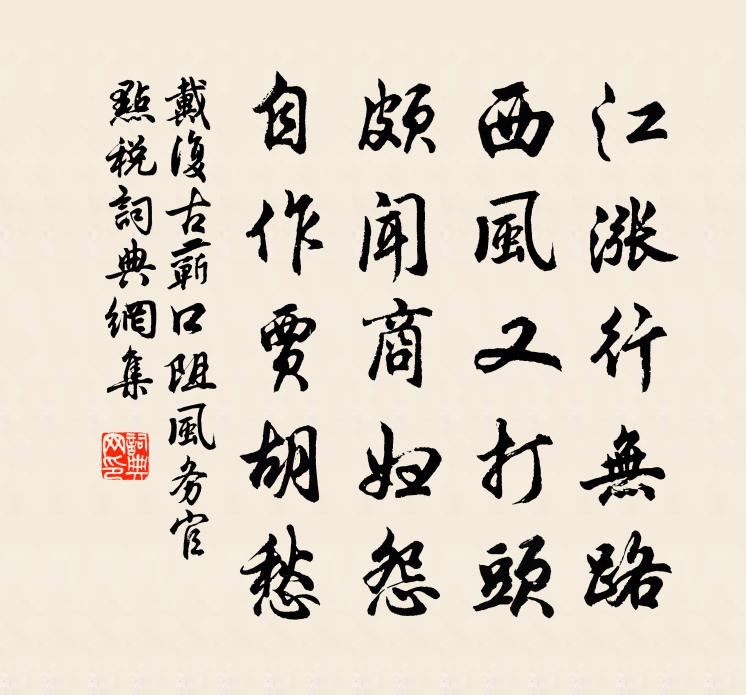 江漲行無路
西風又打頭
頗聞商婦怨
自作賈胡愁
戴復古蘄口阻風务官
點税詞典網集
詞典网印